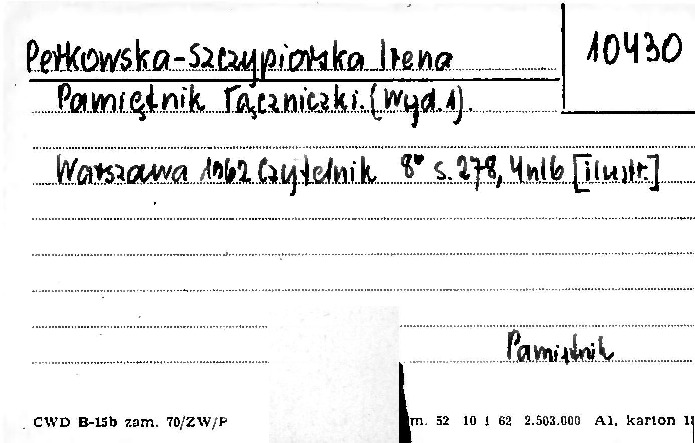 10430
Pełkowska-Szczypiorska Irena
Pamiętnik łączniczki. (Wyd. 1).
Warszawa 1962 Czytelnik 8° s. 278, 4nlb [ilustr.]
Pamiętnik
CWD B-15b zam. 70/ZW/P
m. 52 10 I 62 2.503.000 A1, karton 1